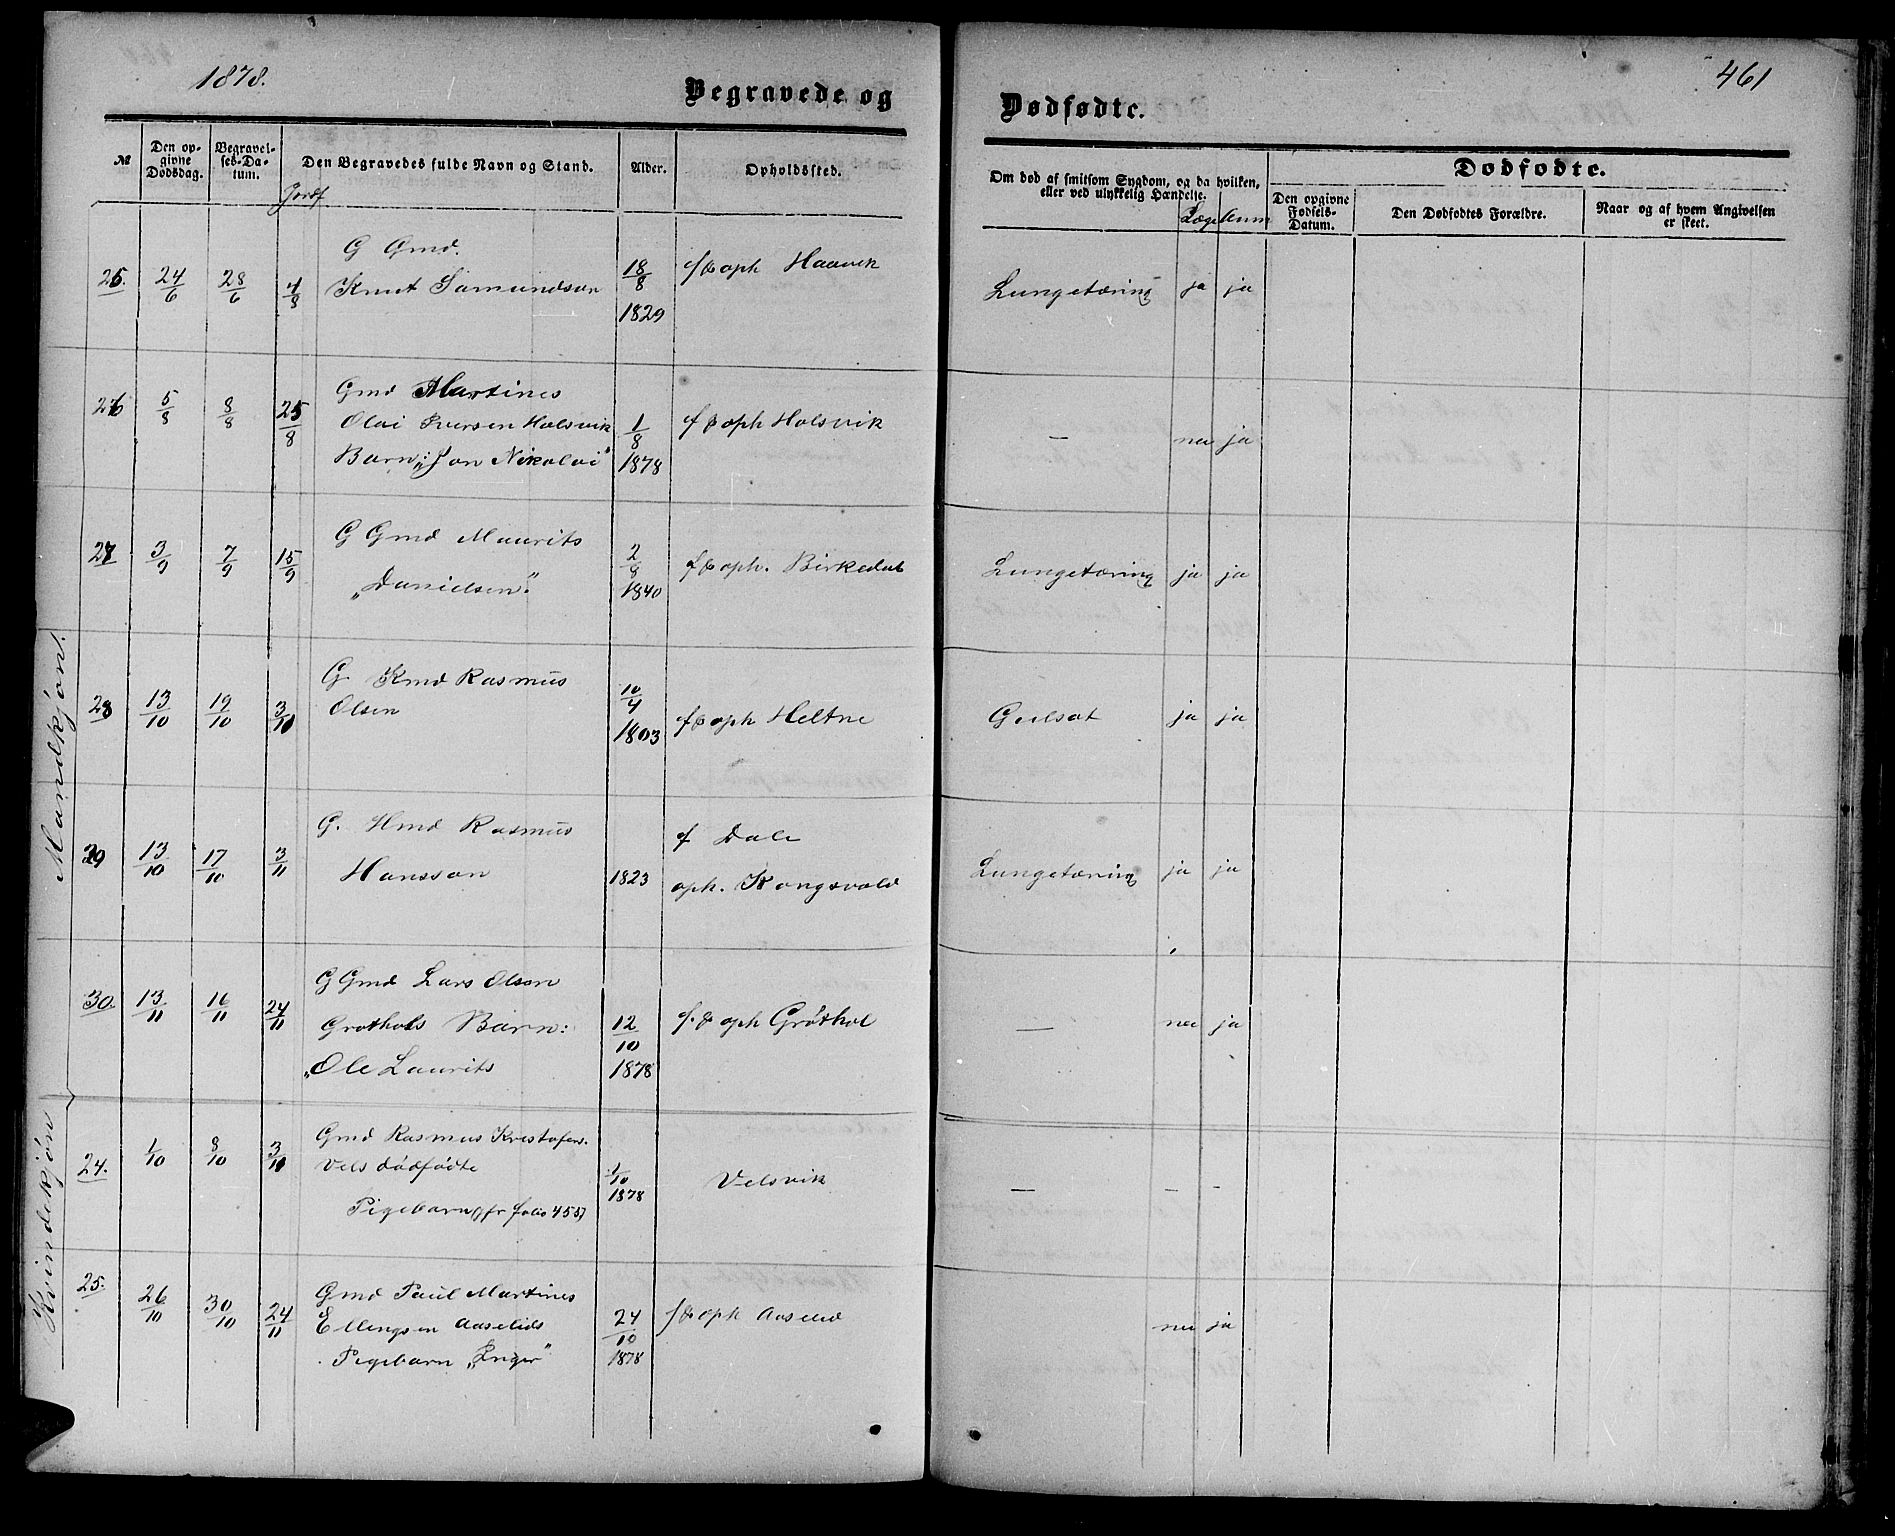 1878.
Begravede og
Dødfødte.
461
№
Den opgivne Dødsdag.
Begravelses-Datum.
Jordf
Den Begravedes fulde Navn og Stand.
Alder.
Opholdssted.
Om død af smitsom Sygdom, og da hvilken, eller ved ulykkelig Hændelse.
Læge
Anm
Dødfødte.
Den opgivne Fødsels-Datum.
Den Dødfødtes Forældre.
Naar og af hvem Angivelsen er skeet.
Mandkjøn.
25. 24/6 28/6 4/8 G Gmd.
Knut Samundson 18/8 1829 f & oph Haavik Lungetæring ja ja
26 5/8 8/8 25/8 Gmd Martines
Olai Iversen Holsvik
Barn: "Jon Nikolai" 1/8 1878 f & oph Holsvik — nei ja
27 3/9 7/9 15/9 G Gmd Maurits
"Danielsen." 2/8 1840 f & oph. Birkedal Lungetæring ja ja
28 13/10 19/10 3/11 G. Kmd Rasmus
Olsen 10/4 1803 f & oph Heltne Gulsot ja ja
29 13/10 17/10 3/11 G. Hmd Rasmus
Hansson 1823 f Dale
oph. Kongsvold Lungetæring ja ja
30. 13/11 16/11 24/11 G Gmd Lars Olsen
Grøthols Barn:
"Ole Laurits 12/10 1878 f. & oph Grøthol — nei ja
Kvindekjøn
24. 1/10 8/10 3/11 Gmd Rasmus Kristofers.
Vels dødfødte
Pigebarn (jfr folio 455) 1/10 1878 Velsvik — - -
25. 26/10 30/10 24/11 Gmd Paul Martines
Ellingsen Aaselids
Pigebarn "Inger" 24/10 1878 f & oph Aaselid nei ja